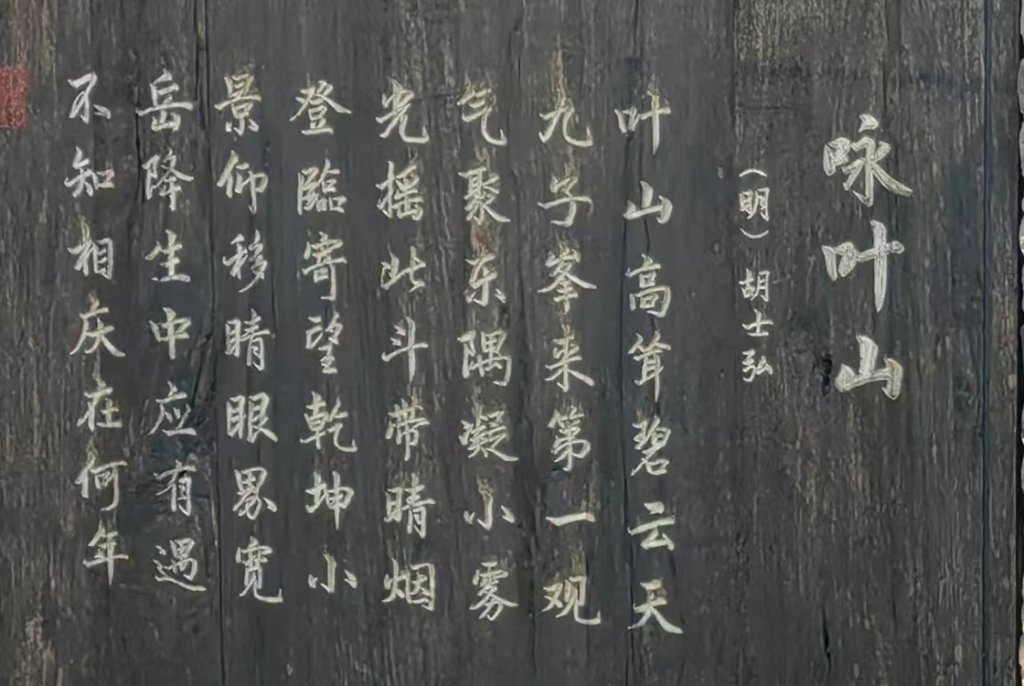 咏叶山
（明）胡士弘
叶山高耸碧云天
九子峯来第一观
气聚东隅凝小雾
光摇此斗带晴烟
登臨寄望乾坤小
景仰移晴眼界宽
岳降生中应有遇
不知相庆在何年